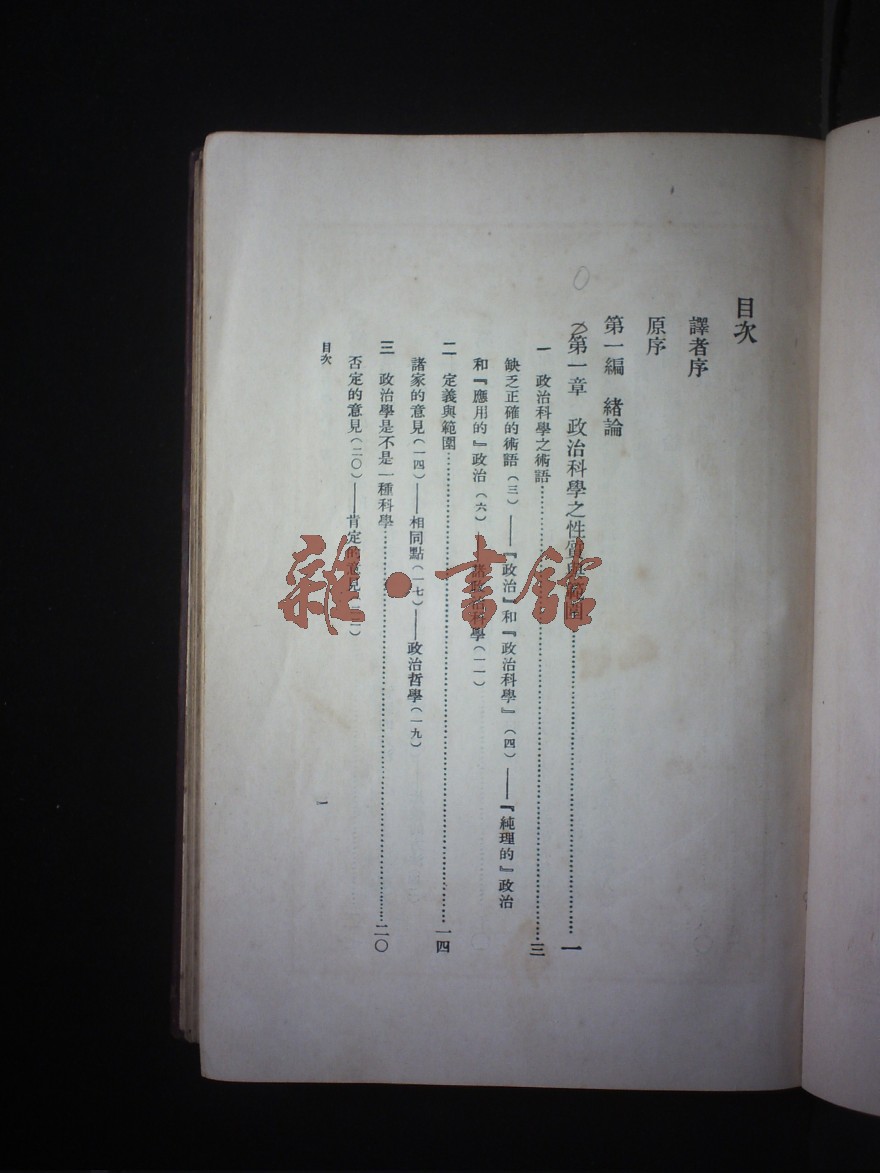 目次
譯者序
原序
第一編　緒論
第一章　政治科學之性質與範圍……………一
一　政治科學之術語……………三
缺乏正確的術語（三）——『政治』和『政治科學』（四）——『純理的』政治
和『應用的』政治（六）——諸政治科學（一一）
二　定義與範圍……………一四
諸家的意見（一四）——相同點（一七）——政治哲學（一九）
三　政治學是不是一種科學……………二〇
否定的意見（二〇）——肯定的意見（二二）
目次
一
雜·書館